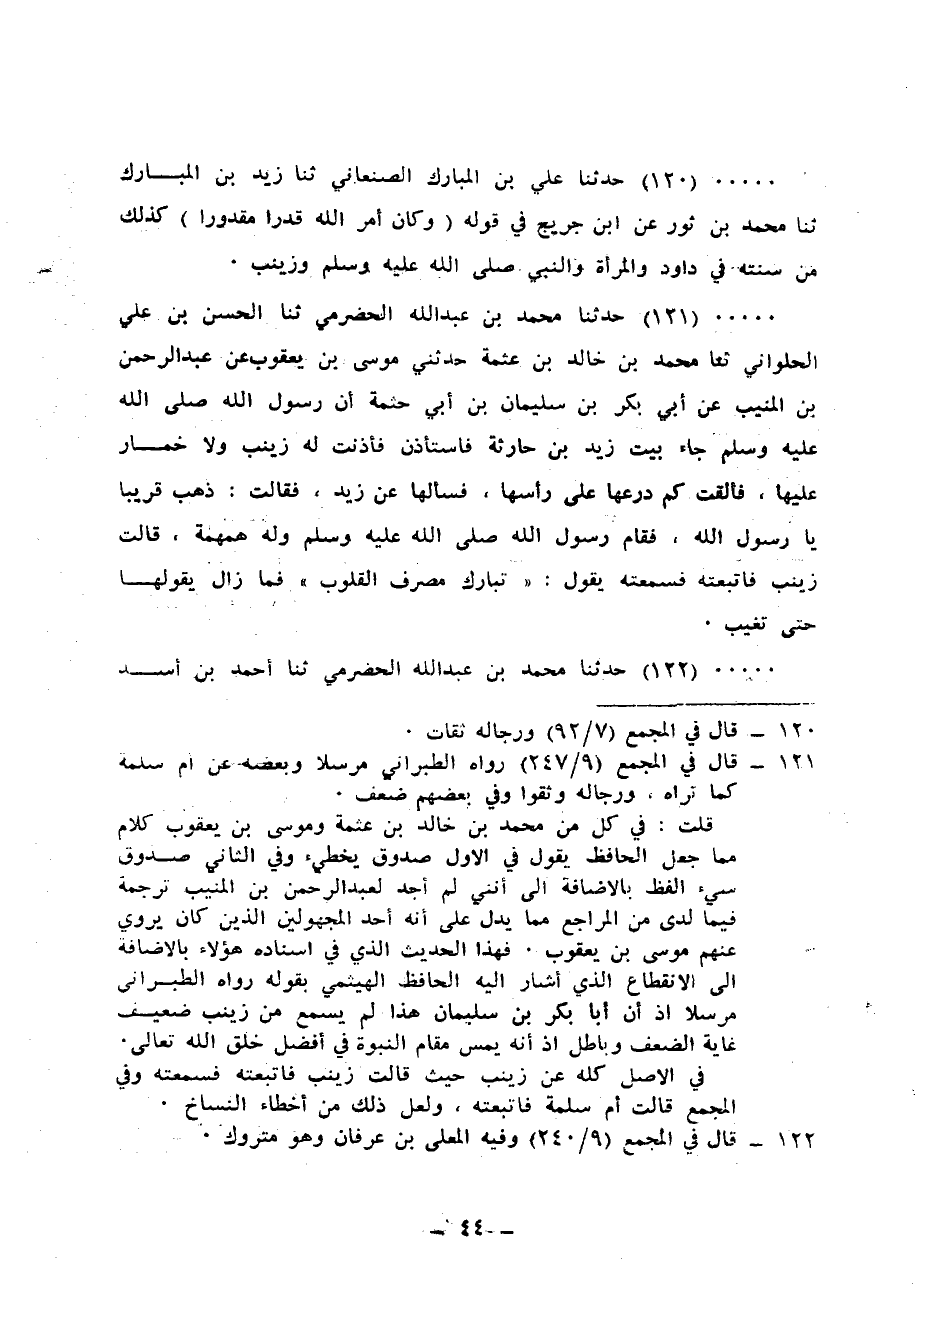 ..... (١٢٠) حدثنا علي بن المبارك الصنعاني ثنا زيد بن المبـــارك
ثنا محمد بن ثور عن ابن جريج في قوله ( وكان أمر الله قدرا مقدورا ) كذلك
من سنته في داود والمرأة والنبي صلى الله عليه وسلم وزينب .
..... (١٢١) حدثنا محمد بن عبدالله الحضرمي ثنا الحسن بن علي
الحلواني ثنا محمد بن خالد بن عثمة حدثني موسى بن يعقوب عن عبدالرحمن
بن المنيب عن أبي بكر بن سليمان بن أبي حثمة أن رسول الله صلى الله
عليه وسلم جاء بيت زيد بن حارثة فاستأذن فأذنت له زينب ولا خمـــار
عليها ، فألقت كم درعها على رأسها ، فسألها عن زيد ، فقالت : ذهب قريبا
يا رسول الله ، فقام رسول الله صلى الله عليه وسلم وله همهمة ، قالت
زينب فاتبعته فسمعته يقول : « تبارك مصرف القلوب » فما زال يقولهـــا
حتى تغيب .
..... (١٢٢) حدثنا محمد بن عبدالله الحضرمي ثنا أحمد بن أســـد
١٢٠ ـ قال في المجمع (٩٢/٧) ورجاله ثقات .
١٢١ ـ قال في المجمع (٢٤٧/٩) رواه الطبراني مرسلا وبعضه عن أم سلمة
كما تراه ، ورجاله وثقوا وفي بعضهم ضعف .
قلت : في كل من محمد بن خالد بن عثمة وموسى بن يعقوب كلام
مما جعل الحافظ يقول في الاول صدوق يخطيء وفي الثاني صـــدوق
سيء الفظ بالاضافة الى أنني لم أجد لعبدالرحمن بن المنيب ترجمة
فيما لدى من المراجع مما يدل على أنه أحد المجهولين الذين كان يروي
عنهم موسى بن يعقوب . فهذا الحديث الذي في اسناده هؤلاء بالاضافة
الى الانقطاع الذي أشار اليه الحافظ الهيثمي بقوله رواه الطبـــراني
مرسلا اذ أن أبا بكر بن سليمان هذا لم يسمع من زينب ضعيـــف
غاية الضعف وباطل اذ أنه يمس مقام النبوة في أفضل خلق الله تعالى .
في الاصل كله عن زينب حيث قالت زينب فاتبعته فسمعته وفي
المجمع قالت أم سلمة فاتبعته ، ولعل ذلك من أخطاء النساخ .
١٢٢ ـ قال في المجمع (٢٤٠/٩) وفيه المعلى بن عرفان وهو متروك .
ـ ٤٤ ـ